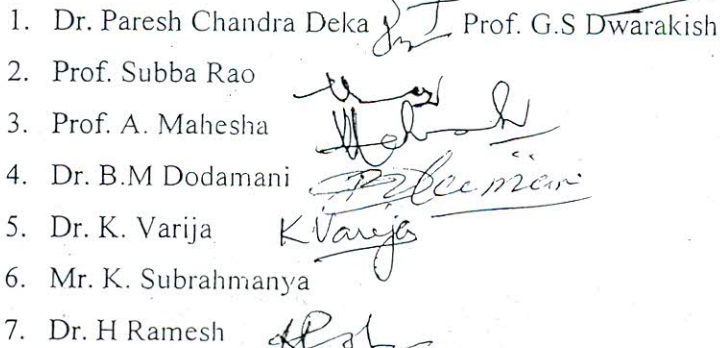 1. Dr. Paresh Chandra Deka Prof. G.S Dwarakish
2. Prof. Subba Rao
3. Prof. A. Mahesha
4. Dr. B.M Dodamani
5. Dr. K. Varija K Varija
6. Mr. K. Subrahmanya
7. Dr. H Ramesh